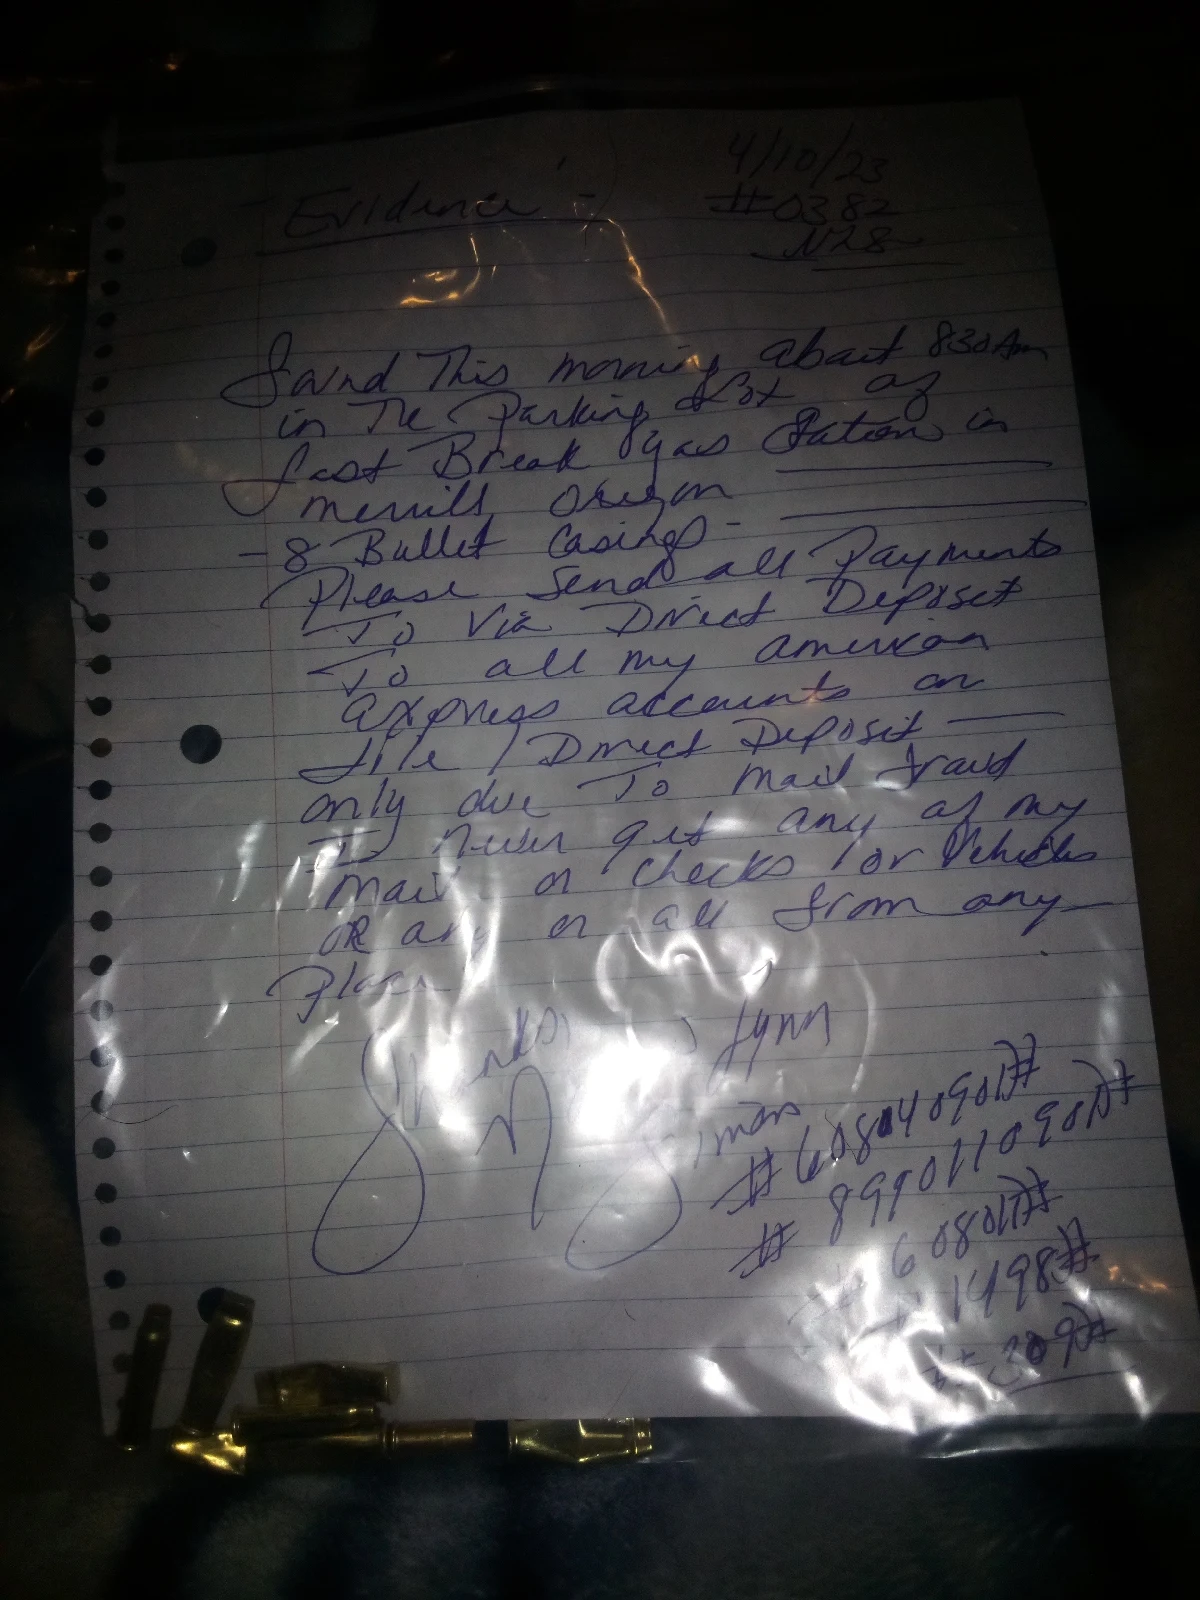 - Evidence -
4/10/23
#0382
N28
found This morning about 830 Am
in The Parking Lot of
fast Break gas Station in
merrill, oregon
- 8 Bullet Casings -
Please Send all Payments
To Via Direct Deposit
To all my american
express accounts on
file / Direct Deposit
only due To mail fraud
I never get any of my
mail or checks / or Vehicles
OR any or all from any
Place
Thanks, Lynn
#608040901#
# 8990110901#
# 60801#
# 1498#
# 309#